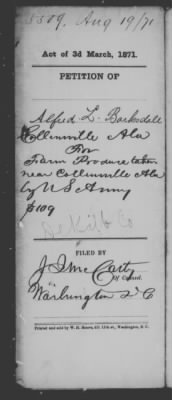 8509. Aug 19/71
Act of 3d March, 1871.
PETITION OF
Alfred L. Barksdale
Collinsville Ala
For
Farm Produce taken
near Collinsville Ala
by U S Army
$109
DeKalb Co
FILED BY
J. J. McCarty
Of Counsel.
Washington D C
Printed and sold by W. H. Moore, 511 11th st., Washington, D. C.